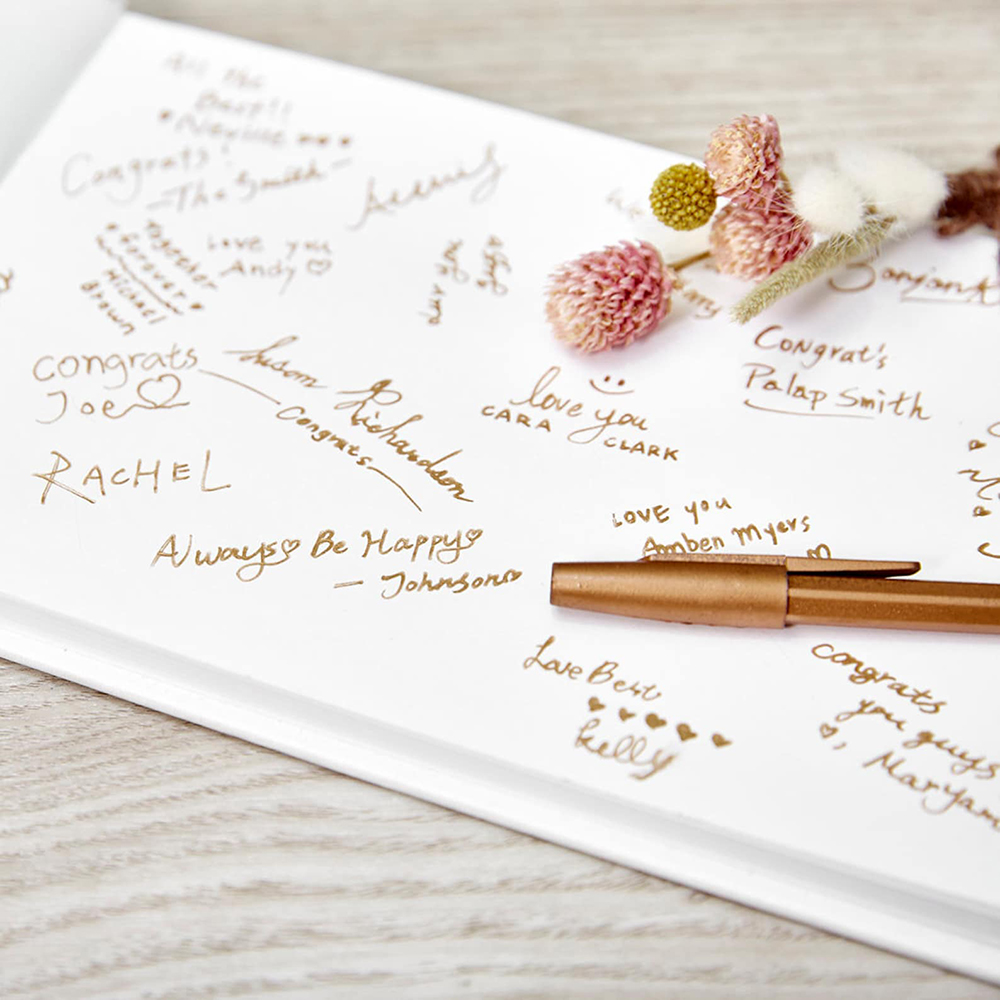 All the
Best!!
Congrats
- The Smith -
Together
Forever
Michael
Brown
Love you
Andy
luv you
guys
congrats
Joe
Susan Richardson
Congrats
RACHEL
Always Be Happy
- Johnson
love you
CARA CLARK
Congrat's
Palap Smith
LOVE you
Amben Myers
Love Best
kelly
congrats
you guys
, Maryam